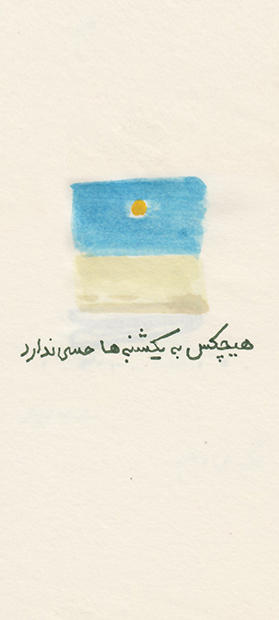 هیچکس به یکشنبه‌ها حسی ندارد